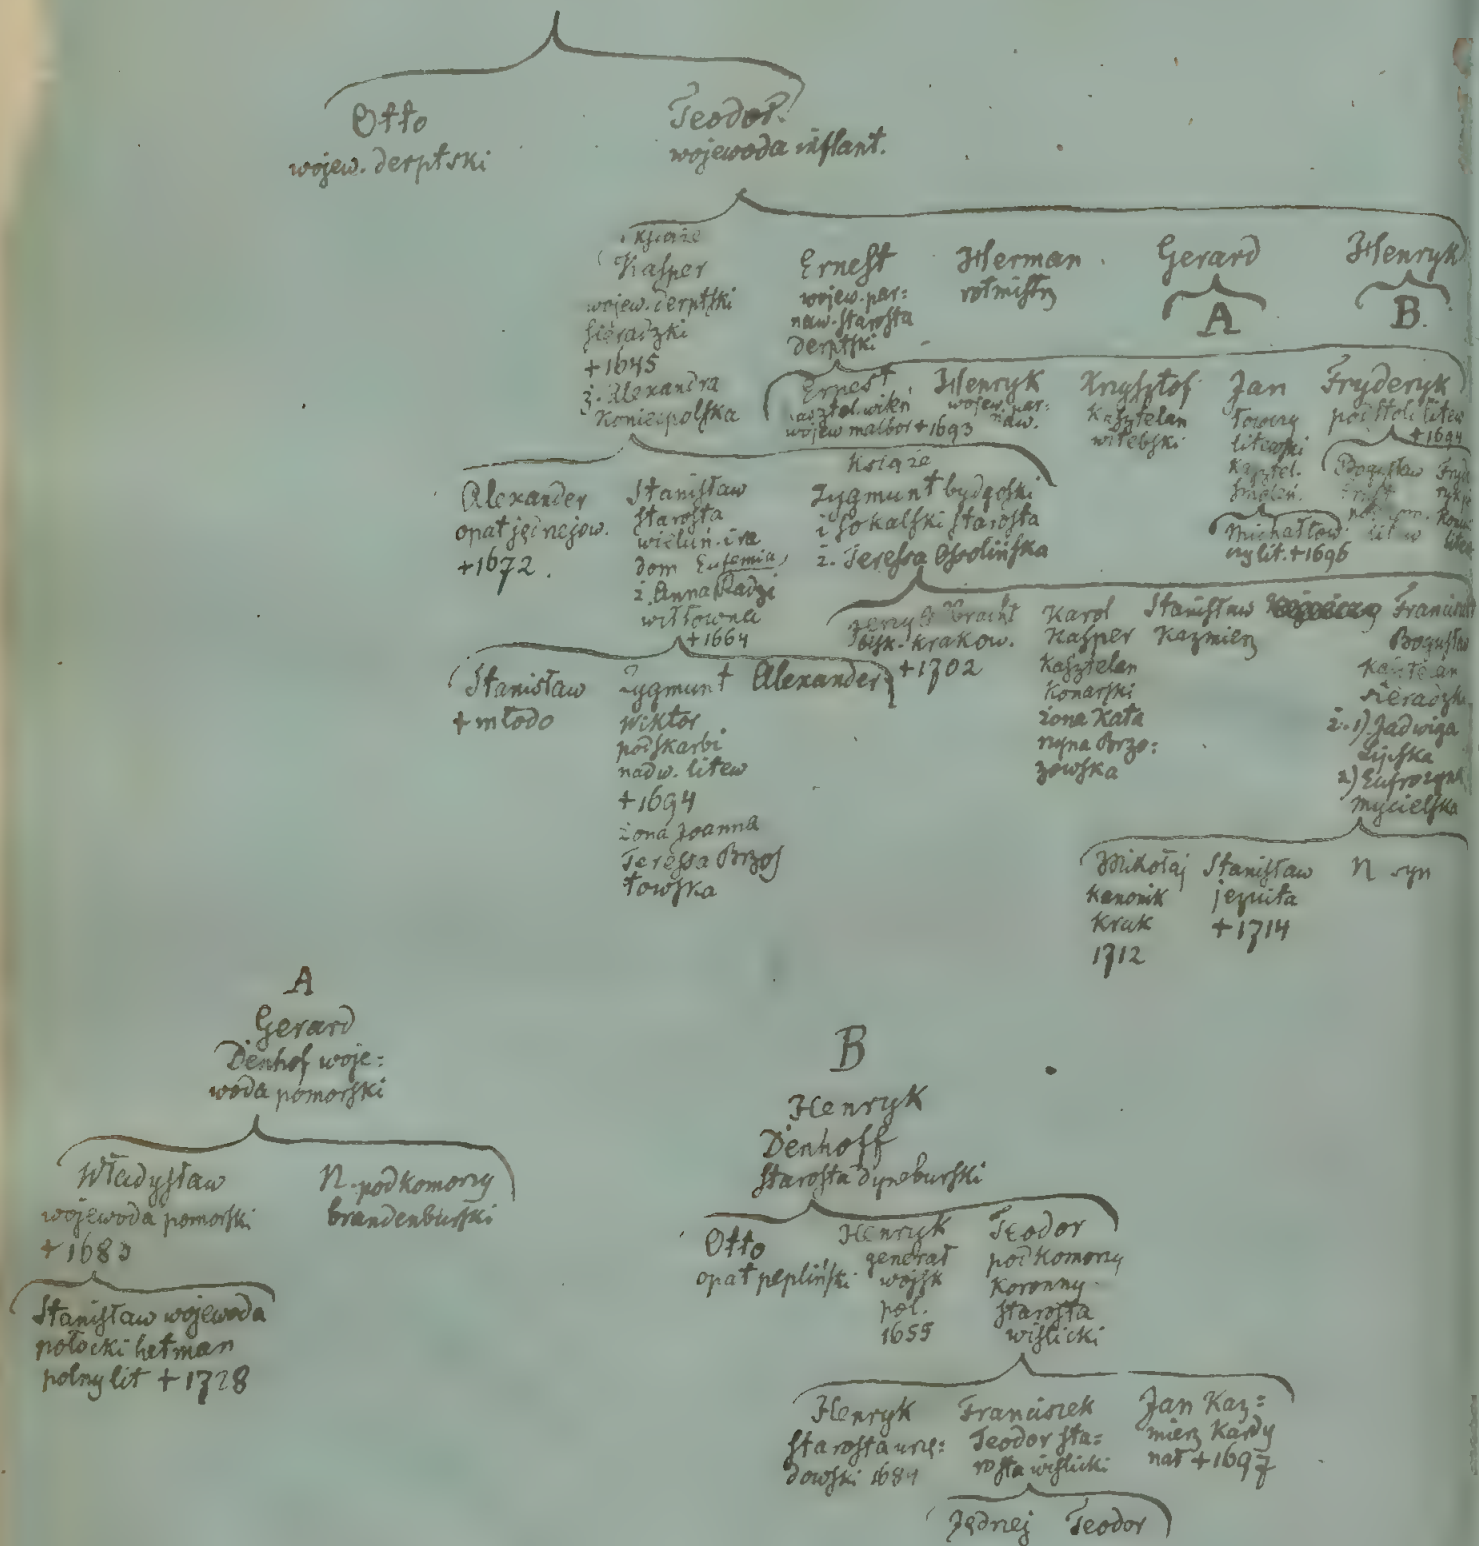 Otto
wojew. derptski
Teodor.
wojewoda inflant.
Książe
Kasper
wojew. derptski
sieradzki
+1645
ż. Alexandra
Koniecpolska
Ernest
wojew. par:
naw. starosta
derptski
Herman
rotmistrz
Gerard
A
Henryk
B.
Ernest
kasztel. wileń
wojew malbor +1693
Henryk
wojew. par:
naw.
Krzysztof
Kasztelan
witebski
Jan
łowczy
litewski
Kasztel.
smoleń.
Fryderyk
podstoli litew
+1694
Michał łow
czy lit. +1696
Bogusław
Alexander
opat jędrzejow.
+1672.
Stanisław
starosta
wieluń. i ra
dom Eufemia
ż. Anna Radzi
wiłłowna
+1664
Książe
Zygmunt bydgoski
i sokalski starosta
ż. Teressa Ossolińska
Stanisław
+ młodo
Zygmunt
Wiktor
podskarbi
nadw. litew
+1694
żona Joanna
Teressa Brzos
towska
Alexander
Jerzy Albracht
bisk. krakow.
+1702
Karol
Kasper
Kasztelan
Konarski
żona Kata
rzyna Brzo:
zowska
Stanisław
Kazmierz
Franciszek
Bogusław
Kasztelan
sieradzki
ż. 1) Jadwiga
Lipska
2) Eufrozyna
Mycielska
Mikołaj
kanonik
Krak
1712
Stanisław
jezuita
+1714
N syn
A
Gerard
Denhof woje:
woda pomorski
Władysław
wojewoda pomorski
+1683
N. podkomorzy
brandenburski
Stanisław wojewoda
połocki hetman
polny lit +1728
B
Henryk
Denhoff
starosta dyneburski
Otto
opat pepliński
Henryk
generał
wojsk
pol.
1655
Teodor
podkomorzy
Koronny
starosta
wislicki
Henryk
starosta urzę:
dowski
Franciszek
Teodor sta:
rosta wislicki
Jan Kaz:
mierz Kardy
nał +1697
Jędrzej Teodor